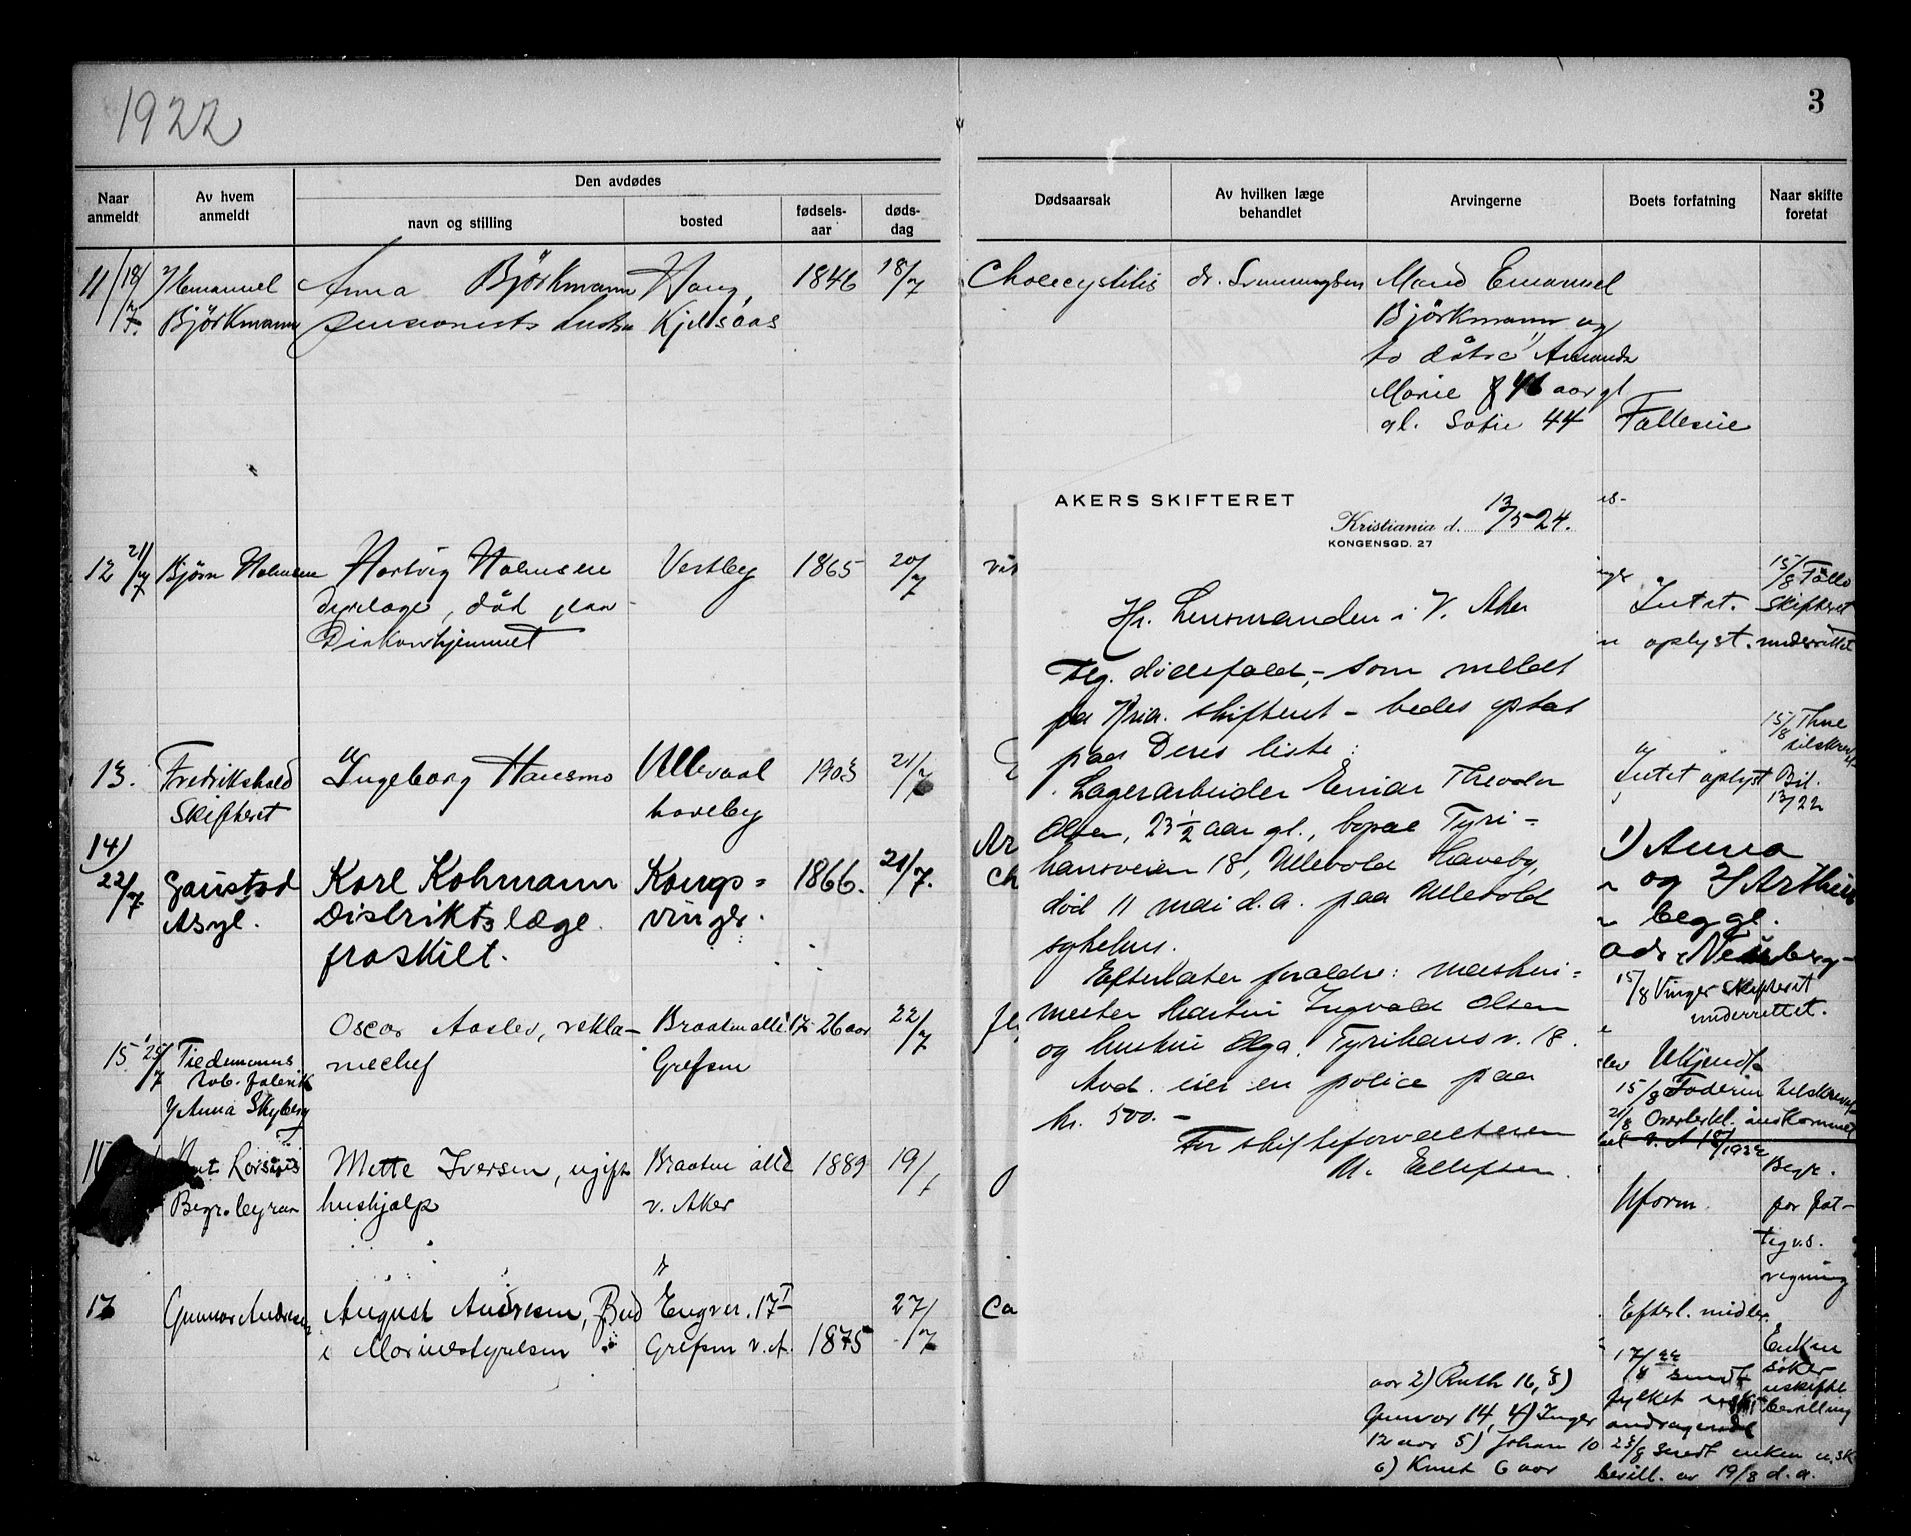 1922
3
Naar anmeldt
Av hvem anmeldt
Den avdødes
navn og stilling
bosted
fødsels-aar
døds-dag
Dødsaarsak
Av hvilken læge behandlet
Arvingerne
Boets forfatning
Naar skifte foretat
11/ 18/7. Emanuel Anna Björkmann Haug, 1846 18/7 Cholecystitis dr. Mand Emanuel
Björkmann Kjelsaas Björkmann og
to døtre 1) Amanda
Marie 46 aar gl
gl. Sofie 44 Fælleseie
12 21/7 Bjørn Holmsen Hartvig Holmsen Vestby 1865 20/7
dyrlæge, død paa
Diakonhjemmet
Intet oplyst.
15/8 Follo
Skifteret
underrettet
13. Fredrikshald Ingeborg Hansmo Ullevaal 1903 21/7
Skifteret haveby
Intet oplyst
15/8 Thue
tilskrev
Bil.
13/22
14) 22/7 Gaustad Karl Kohmann Kongs= 1866. 21/7.
Asyl. Distriktslæge. vinger.
fraskilt.
1) Anna
og 2) Arthur
begge gl.
adr. Neuberg-
15/8 Vinger skifteret
underrettet.
Oscar Aaslev, rekla- Braaten allé 17 26 aar 22/7
15 25/7 Tiedemanns mechef Grefsen
tob. fabrik
v/ Anna Skyberg
Ukjendt
15/8 Faderen tilskrevet
21/8 indkommet
Mette Iversen, ugift Braaten allé 1889 19/
Begr. byraa hushjælp v. Aker
Uform.
Begr.
for fat-
tigv.s.
regning
17 Gunnar Andresen August Andresen, Bud Engver. 17 27/7
i Marinestyrelsen Grefsen v. A. 1875
Efterl. midler.
17/8 22 sendt
fylket
andragende
23/8 sendt enken u.sk
bevill. av 19/8 d.a.
Enken
søker
uskifte
bevilling
aar 2) Ruth 16, 3)
Gunvor 14, 4) Inger
12 aar 5) Johan 10
6) Knut 6 aar
AKERS SKIFTERET
Kristiania d. 13/5-24.
KONGENSGD. 27
Hr. Lensmanden i V. Aker
Flg. dødsfald, - som meldt
fra Kria. skifteret - bedes opført
paa Deres liste:
Lagerarbeider Einar Theodor
Olsen, 23 1/2 aar gl., bopæl Tyri-
hansveien 18, Ullevold Haveby,
död 11 mai d.a. paa Ullevold
sykehus.
Efterlater forældre: maskin=
mester Martin Ingvald Olsen
og hustru Olga. Tyrihansv. 18.
Avd. eier en police paa
kr. 500.-
For skifteforvalteren
M. Ellefsen.